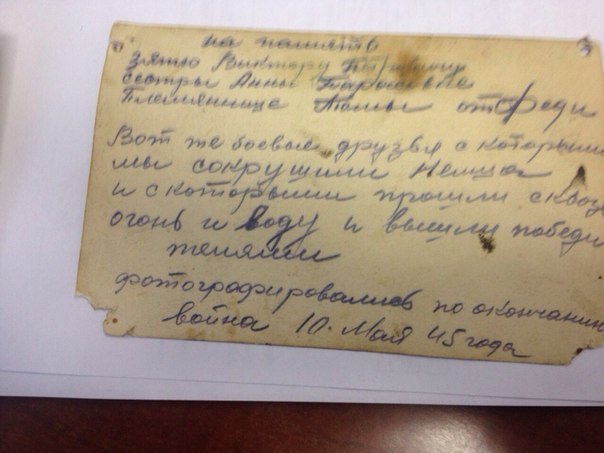 на память
зятю Виктору
сестры Анны Тарасовна
Племяннице Томы от Феди
Вот же боевые друзья с которыми
мы сокрушили Немца
и скоторыми прошли сквоз
огонь и воду и вышли победи
телями
фотографировались по окончании
война 10. Мая 45 года